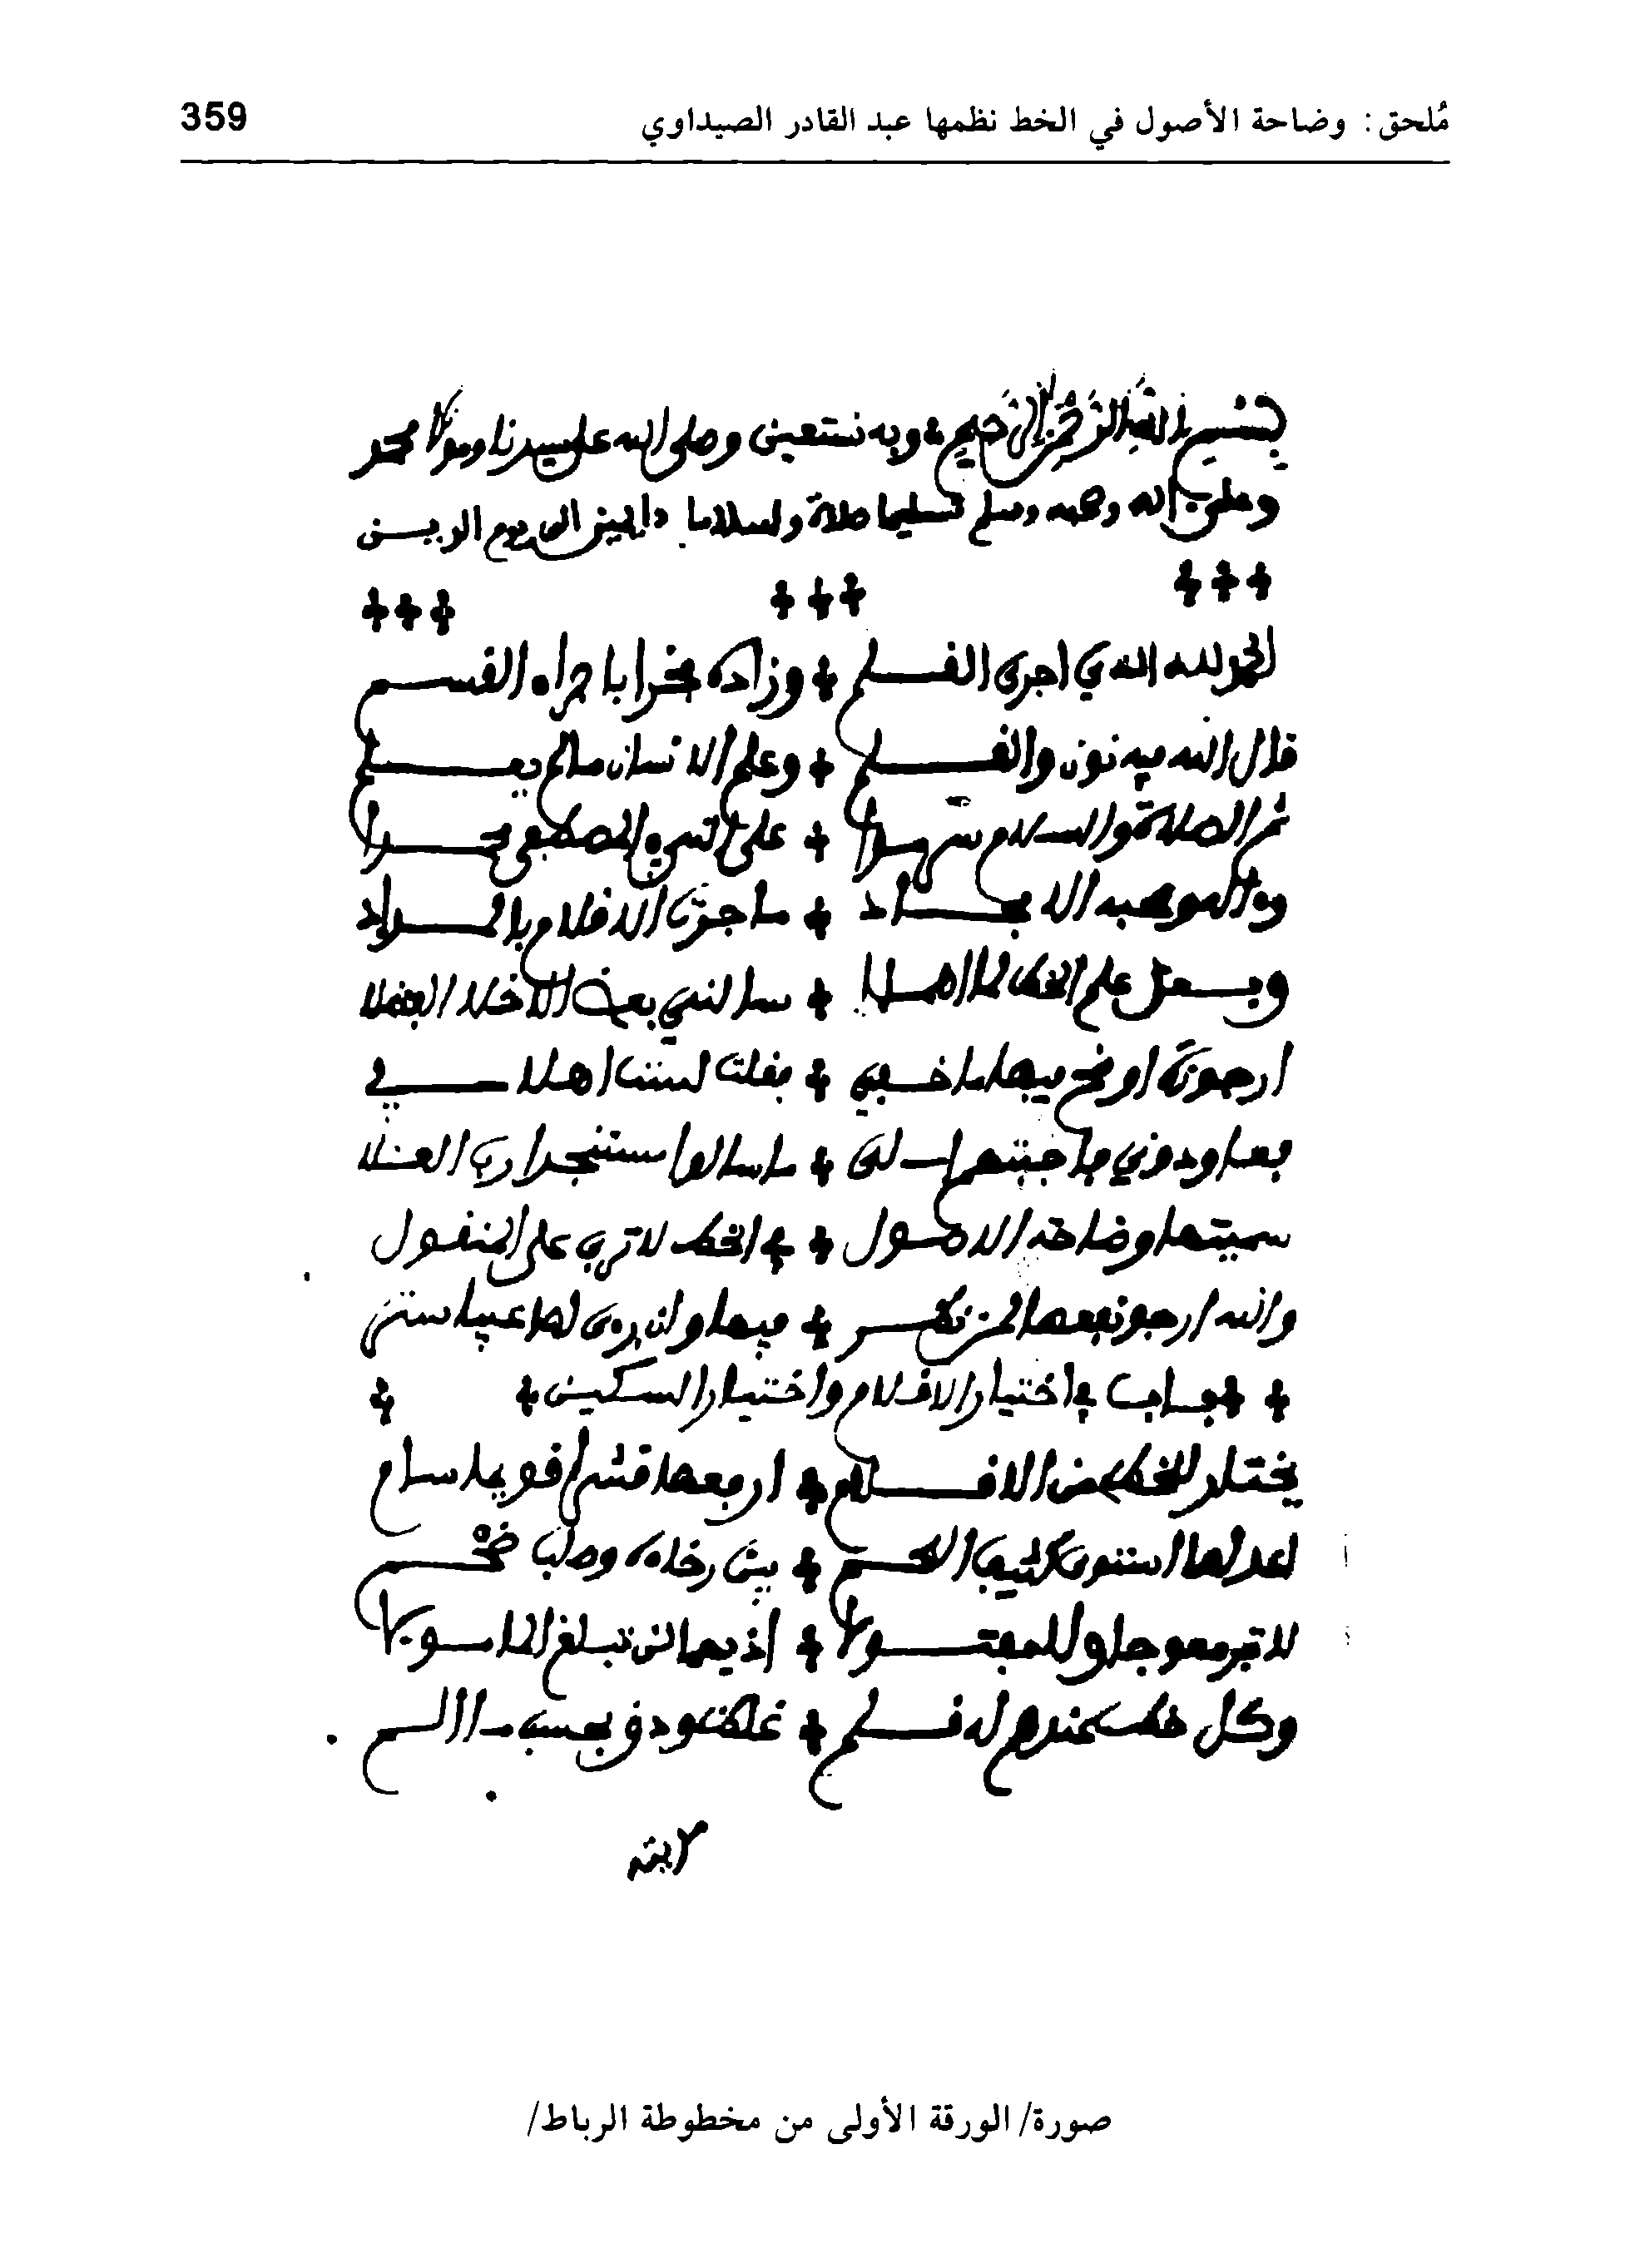 مُلحق: وضاحة الأصول في الخط نظمها عبد القادر الصيداوي 359
بسم الله الرحمن الرحيم وبه نستعين وصلى الله على سيدنا ومولانا محمد
وعلى اله وصحبه وسلم تسليما صلاة وسلاما دايمين الى يوم الدين
الحمد لله الذي اجرى القلم وزاده فخرا باجراه القسم
قال الله فيه نون والقلم وعلم الانسان ما لم يعلم
ثم الصلاة والسلام سرمدا على النبي المصطفى محمدا
وءاله وصحبه الامجاد ما جرت الاقلام بالمداد
وبعد علم الخط لما اهملا سالني بعض الاخلا الفضلا
ارجوزة اوضح فيها ما خفي فقلت لست اهلا في
فعاودوني فاجبتهم الى ما سالوا مستنجدا رب العلا
سميتها وضاحة الاصول في الخط لا تربي على المنقول
والله ارجو نفعها لمن نظر فيها وان يرى لها عيبا ستر
باب في اختيار الاقلام واختيار السكين
يختار للخط من الاقلام ارفعها قشرا قويا سام
اعدلها استوى كثيف اللحم بين رخاه وصلب ضخم
لا تبر معوجا ولا مفتولا اذ بهما لن تبلغ الماسولا
وكل خط عندهم له قلم غلظ ودق بحسب ما
صورة/ الورقة الأولى من مخطوطة الرباط/